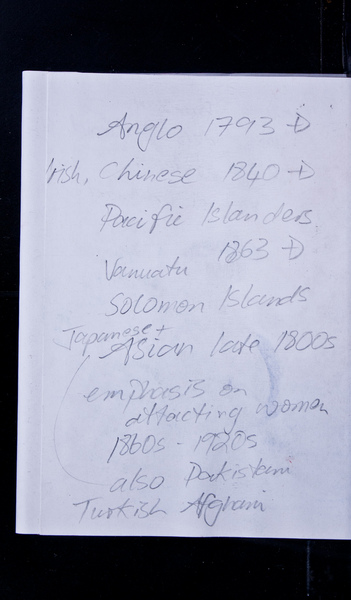 Anglo 1793 →
Irish, Chinese 1840 →
Pacific Islanders
1863 →
Vanuatu
Solomon Islands
Japanese +
Asian late 1800s
emphasis on
attacting women
1860s - 1920s
also Pakistani
Turkish Afghani